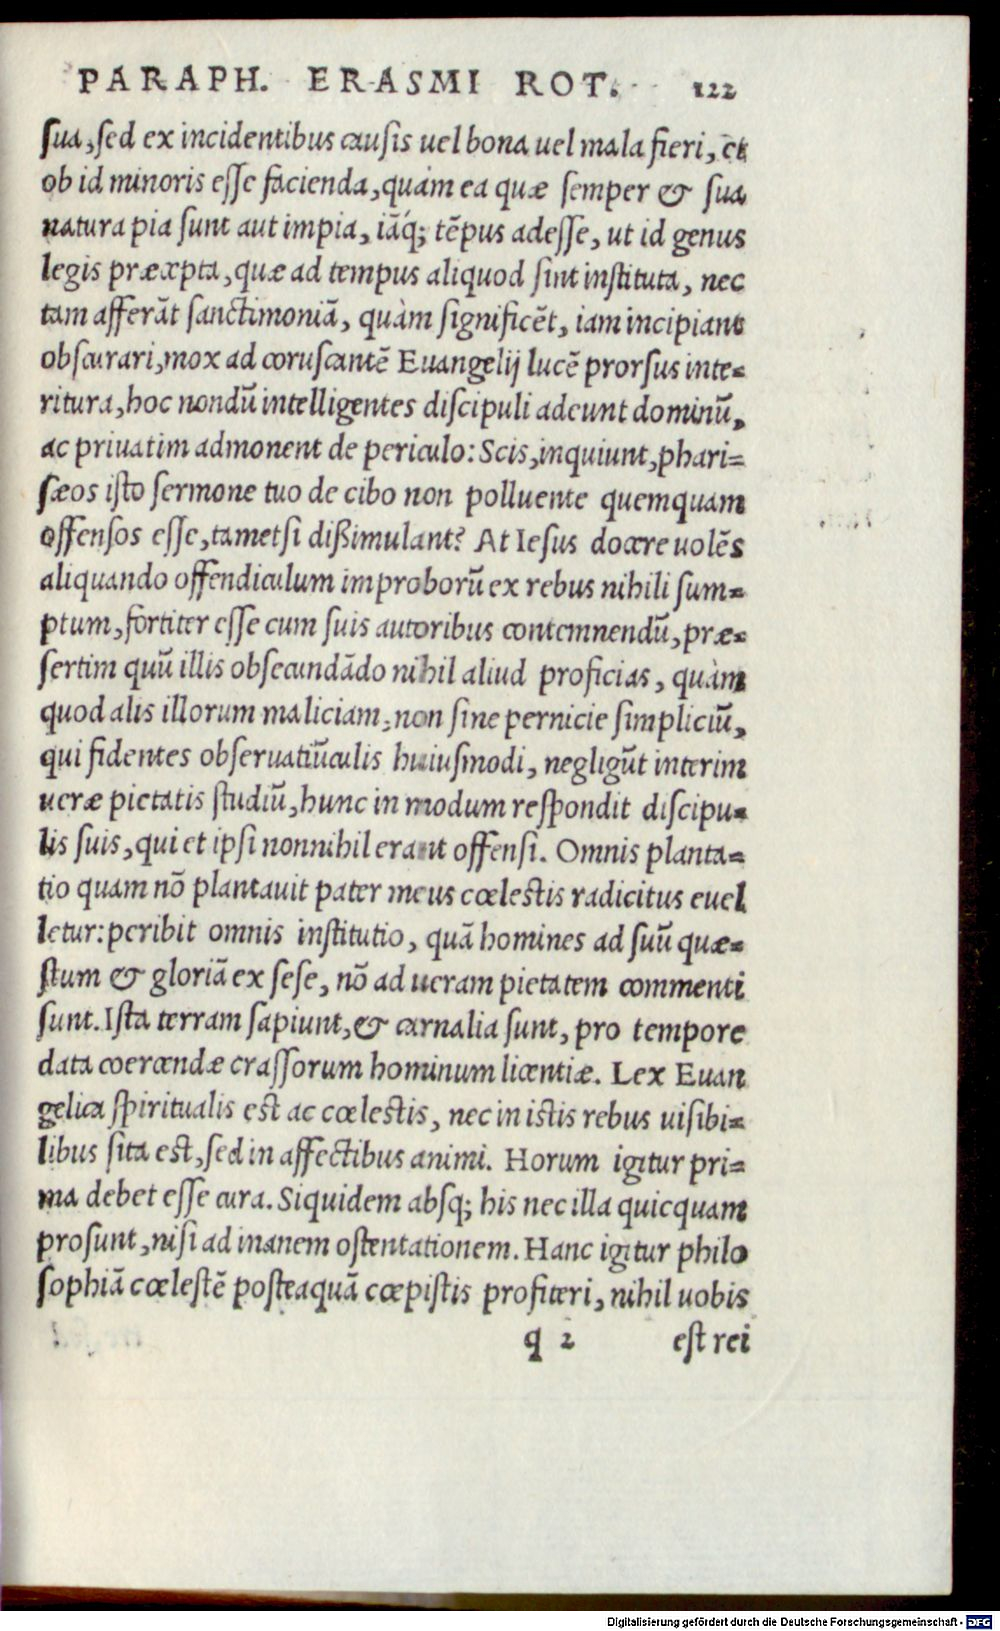 PARAPH. ERASMI ROT. 122
sua, sed ex incidentibus causis uel bona uel mala fieri, et
ob id minoris esse facienda, quàm ea quæ semper & sua
natura pia sunt aut impia, iāq́; tēpus adesse, ut id genus
legis præcepta, quæ ad tempus aliquod sint instituta, nec
tam afferāt sanctimoniā, quàm significēt, iam incipiant
obscurari, mox ad coruscantē Euangelij lucē prorsus inte=
ritura, hoc nondū intelligentes discipuli adeunt dominū,
ac priuatim admonent de periculo: Scis, inquiunt, phari=
sæos isto sermone tuo de cibo non polluente quemquam
offensos esse, tametsi dißimulant? At Iesus docere uolēs
aliquando offendiculum improborū ex rebus nihili sum=
ptum, fortiter esse cum suis autoribus contemnendū, præ=
sertim quū illis obsecundādo nihil aliud proficias, quàm
quod alis illorum maliciam, non sine pernicie simpliciū,
qui fidentes obseruatiūculis huiusmodi, negligūt interim
ueræ pietatis studiū, hunc in modum respondit discipu=
lis suis, qui et ipsi nonnihil erant offensi. Omnis planta=
tio quam nō plantauit pater meus cœlestis radicitus euel
letur: peribit omnis institutio, quā homines ad suū quæ=
stum & gloriā ex sese, nō ad ueram pietatem commenti
sunt. Ista terram sapiunt, & carnalia sunt, pro tempore
data coercendæ crassorum hominum licentiæ. Lex Euan
gelica spiritualis est ac cœlestis, nec in istis rebus uisibi=
libus sita est, sed in affectibus animi. Horum igitur pri=
ma debet esse cura. Siquidem absq; his nec illa quicquam
prosunt, nisi ad inanem ostentationem. Hanc igitur philo
sophiā cœlestē posteaquā cœpistis profiteri, nihil uobis
q 2 est rei
Digitalisierung gefördert durch die Deutsche Forschungsgemeinschaft - DFG